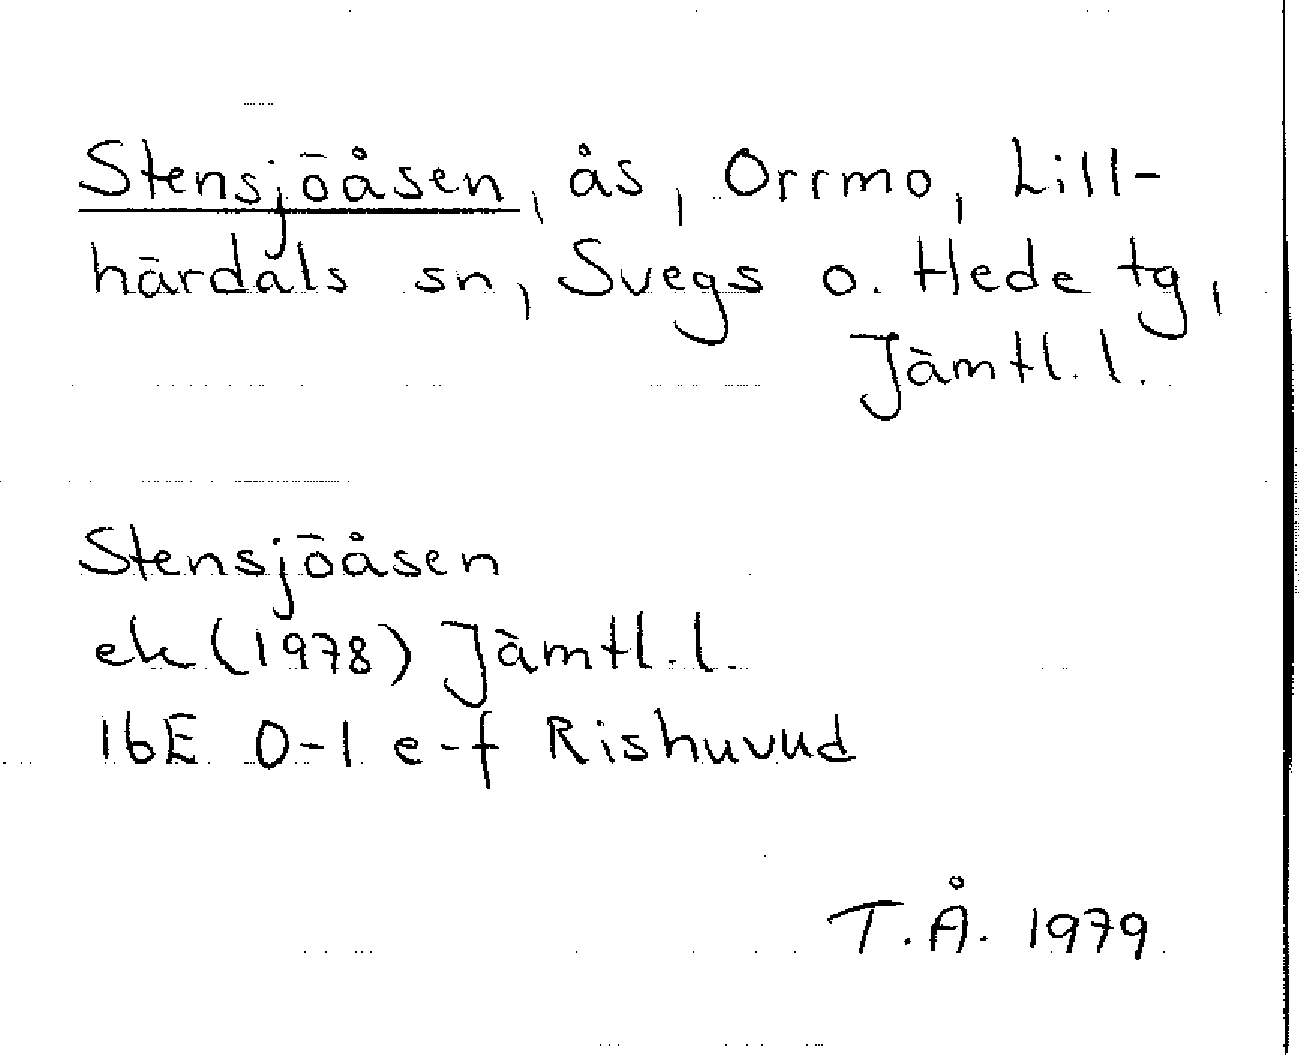 Stensjöåsen, ås, Orrmo, Lill-
härdals sn, Svegs o. Hede tg,
Jämtl. l.
Stensjöåsen
ek (1978) Jämtl. l.
16E 0-1 e-f Rishuvud
T.Å. 1979